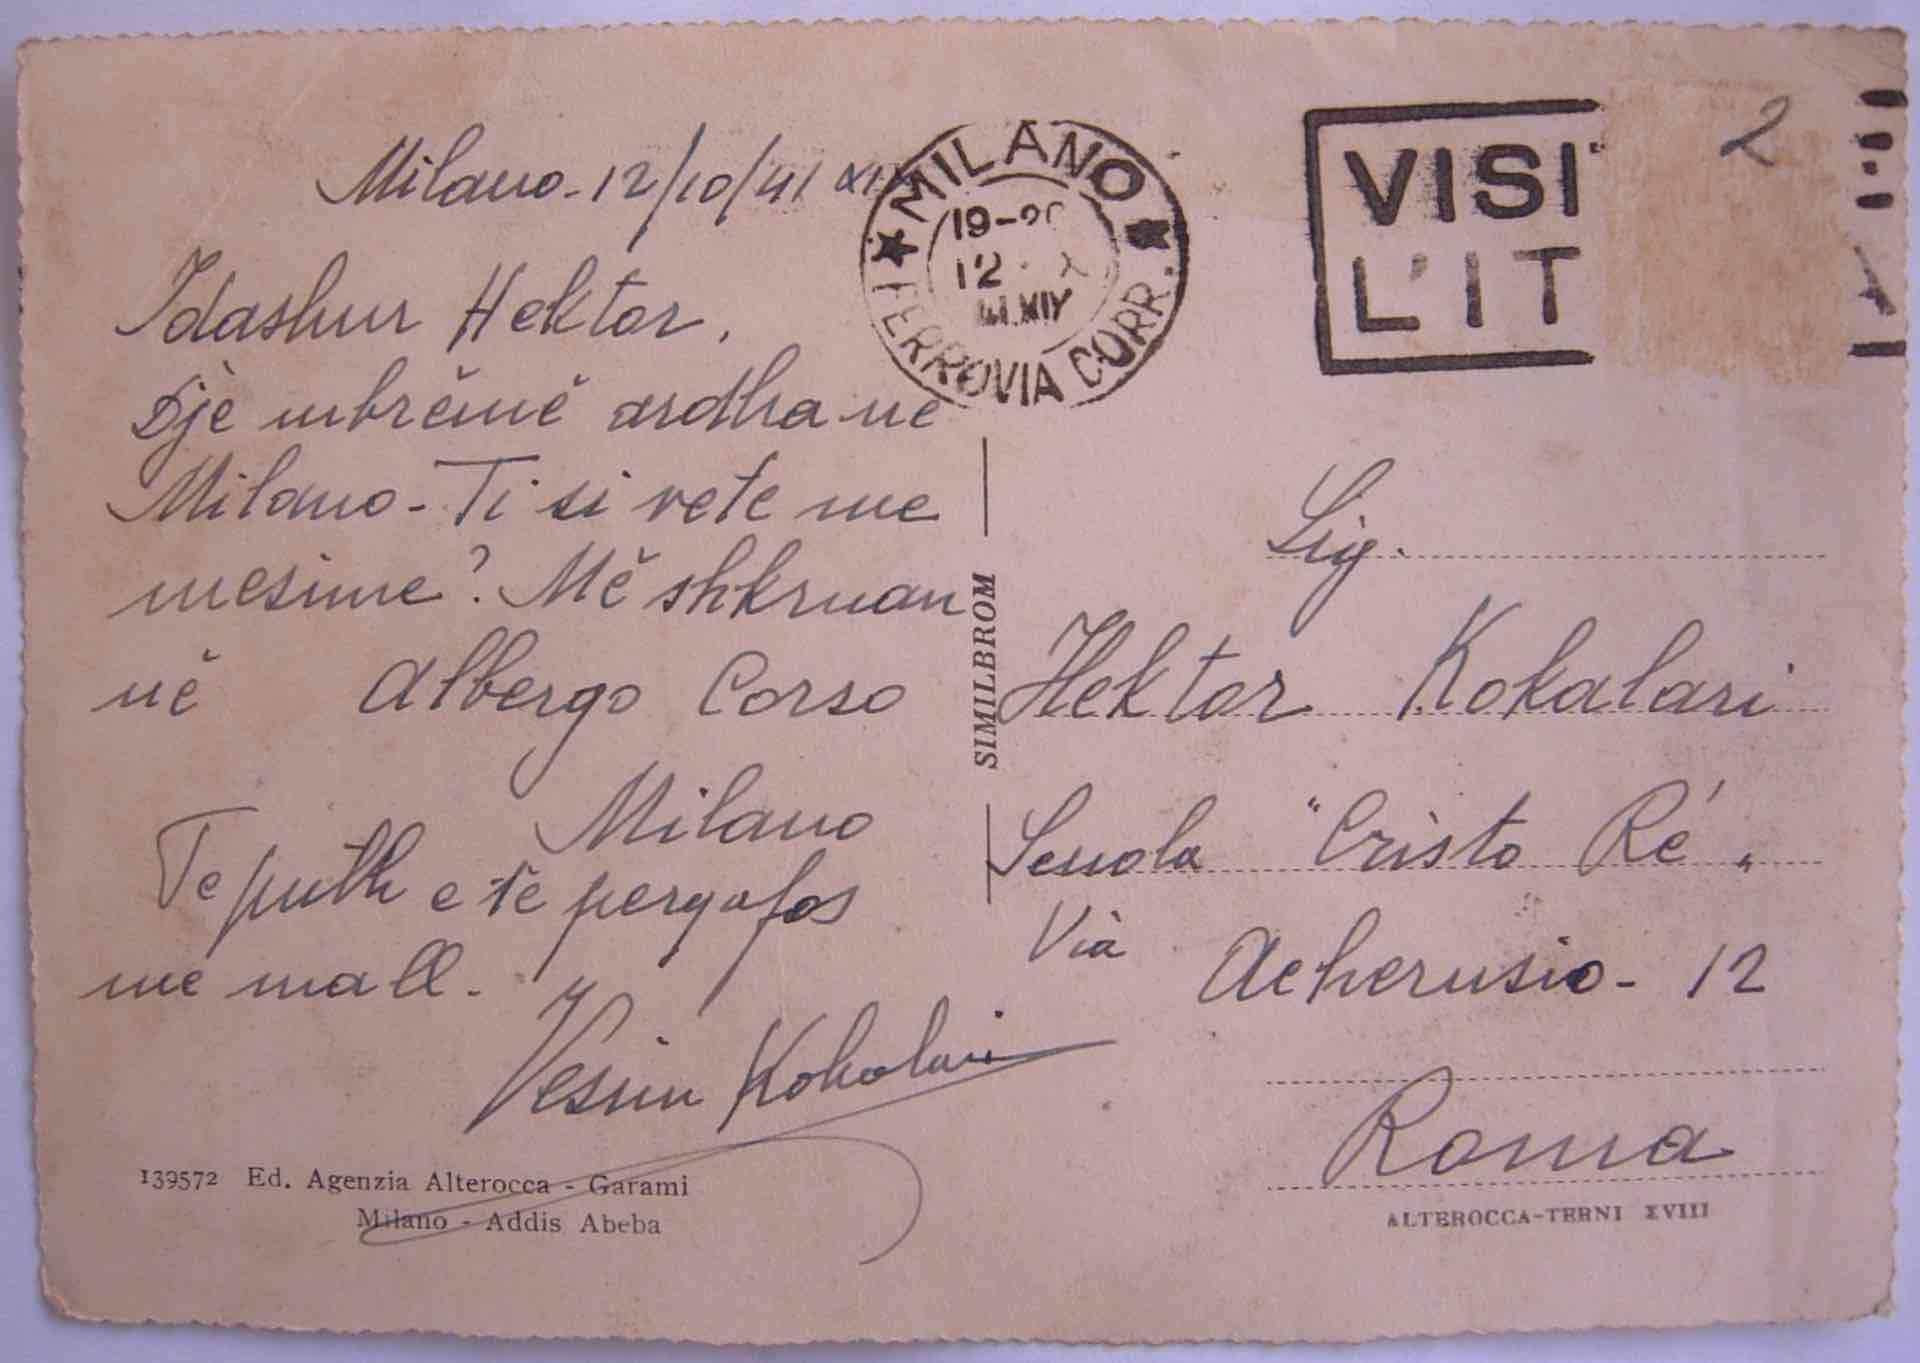 Milano-12/10/41 XIX
MILANO
19-20
12 X
41.XIX
FERROVIA CORR.
VISI
L'IT
A
2
Idashur Hektor,
Djè mbrëmë ardha ne
Milano-Ti si vete me
mesime? Më shkruan
në Albergo Corso
Milano
Te puth e të pergafos
me mall.
Vesim Kokalari
139572 Ed. Agenzia Alterocca - Garami
Milano - Addis Abeba
SIMILBROM
Sig.
Hektor Kokalari
Scuola "Cristo Ré"
Vià Acherusio-12
Roma
ALTEROCCA-TERNI XVIII